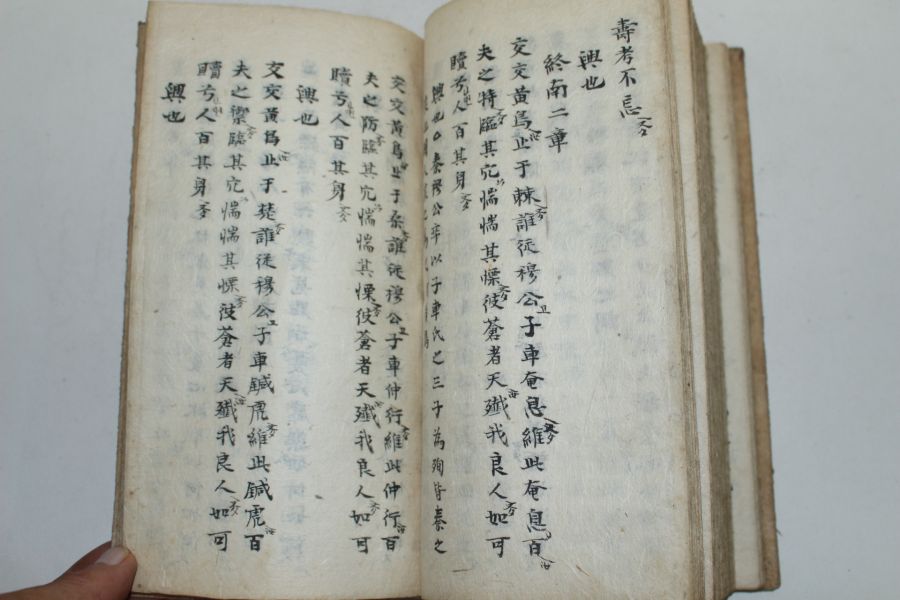 壽考不忘
興也
終南二章
交交黃鳥止于棘誰從穆公子車奄息維此奄息百
夫之特臨其穴惴惴其慄彼蒼者天殲我良人如可
贖兮人百其身
興也○秦穆公卒以子車氏之三子為殉皆秦之
交交黃鳥止于桑誰從穆公子車仲行維此仲行百
夫之防臨其穴惴惴其慄彼蒼者天殲我良人如可
贖兮人百其身
興也
交交黃鳥止于楚誰從穆公子車鍼虎維此鍼虎百
夫之禦臨其穴惴惴其慄彼蒼者天殲我良人如可
贖兮人百其身
興也